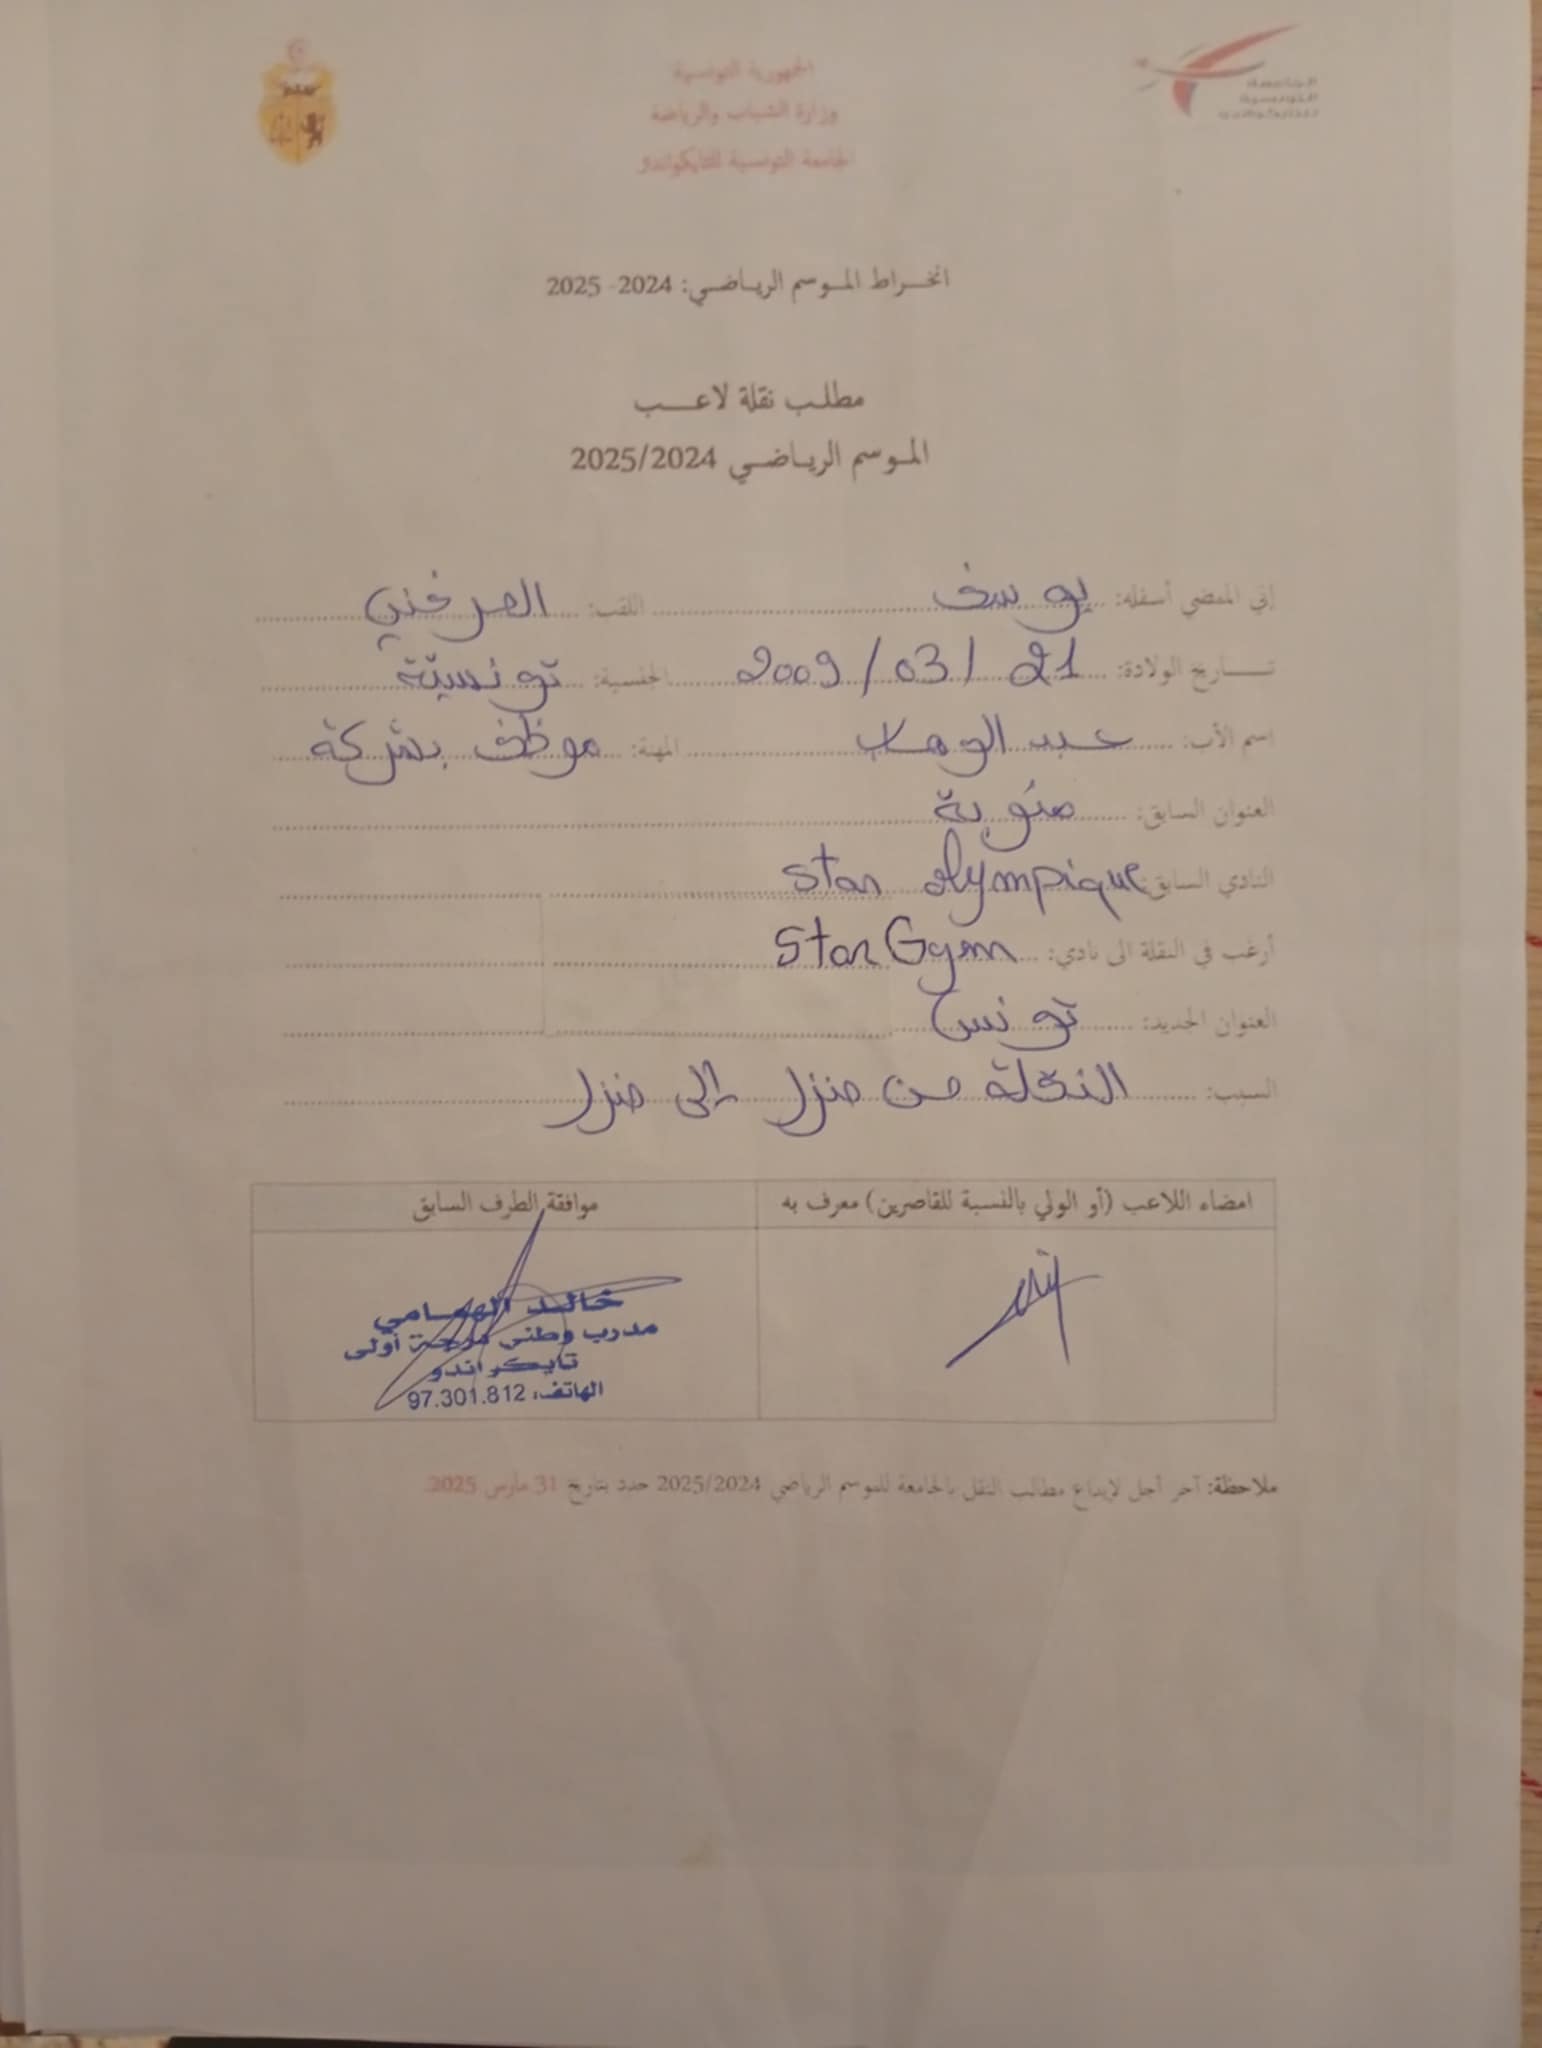 الجامعة
التونسية
للتايكواندو
الجمهورية التونسية
وزارة الشباب والرياضة
الجامعة التونسية للتايكواندو
انخراط الموسم الرياضي: 2024- 2025
مطلب نقلة لاعب
الموسم الرياضي 2025/2024
إني الممضي أسفله: يوسف اللقب: العرفني
تاريخ الولادة: 21 / 03 / 2009 الجنسية: تونسية
اسم الأب: عبد الوهاب المهنة: موظف بشركة
العنوان السابق: منوبة
النادي السابق: Star Olympique
أرغب في النقلة الى نادي: Star Gym
العنوان الجديد: تونس
السبب: النقلة من منزل إلى منزل
امضاء اللاعب (أو الولي بالنسبة للقاصرين) معرف به
موافقة الطرف السابق
خالد الهمامي
مدرب وطني درجة أولى
تايكواندو
الهاتف: 97.301.812
ملاحظة: آخر أجل لإيداع مطالب النقل بالجامعة للموسم الرياضي 2025/2024 حدد بتاريخ 31 مارس 2025.